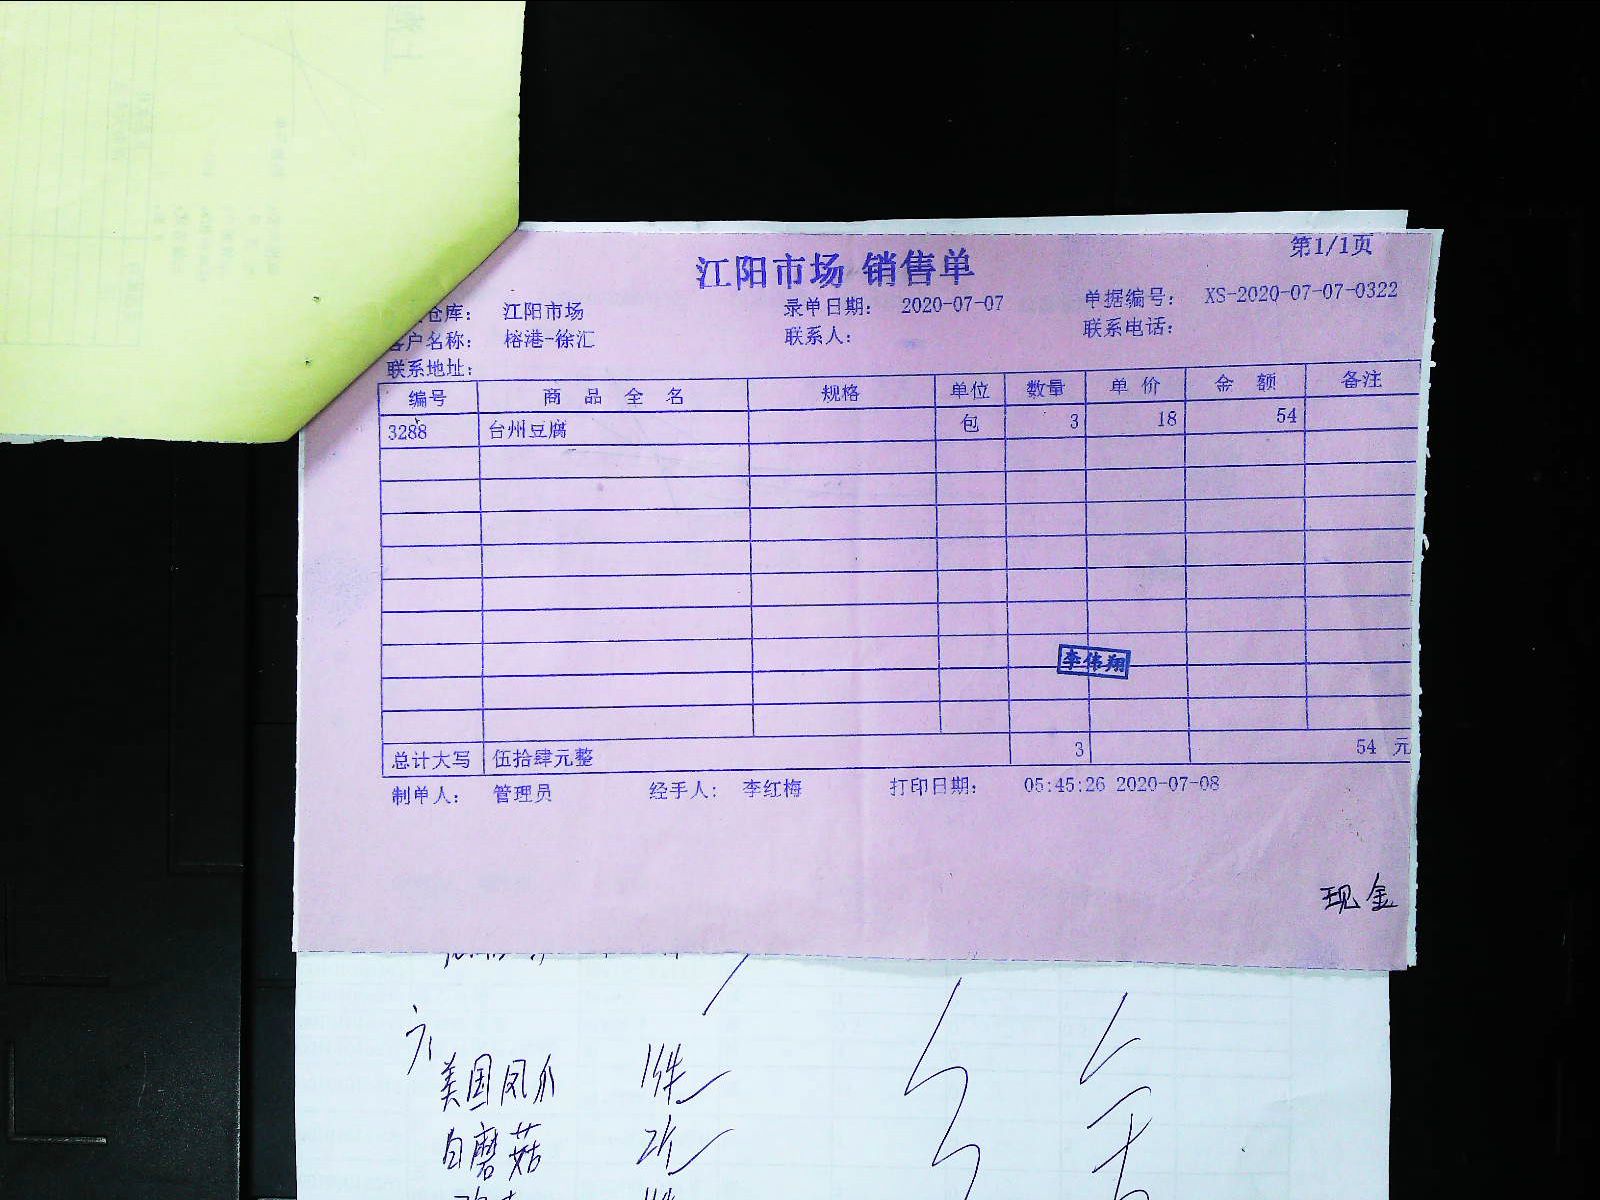 第1/1页
江阳市场 销售单
仓库： 江阳市场 录单日期： 2020-07-07 单据编号： XS-2020-07-07-0322
客户名称： 榕港-徐汇 联系人： 联系电话：
联系地址：
编号 商品全名 规格 单位 数量 单价 金额 备注
3288 台州豆腐 包 3 18 54
李伟翔
总计大写 伍拾肆元整 3 54 元
制单人： 管理员 经手人： 李红梅 打印日期： 05:45:26 2020-07-08
现金
美国凤爪 1件
白磨菇